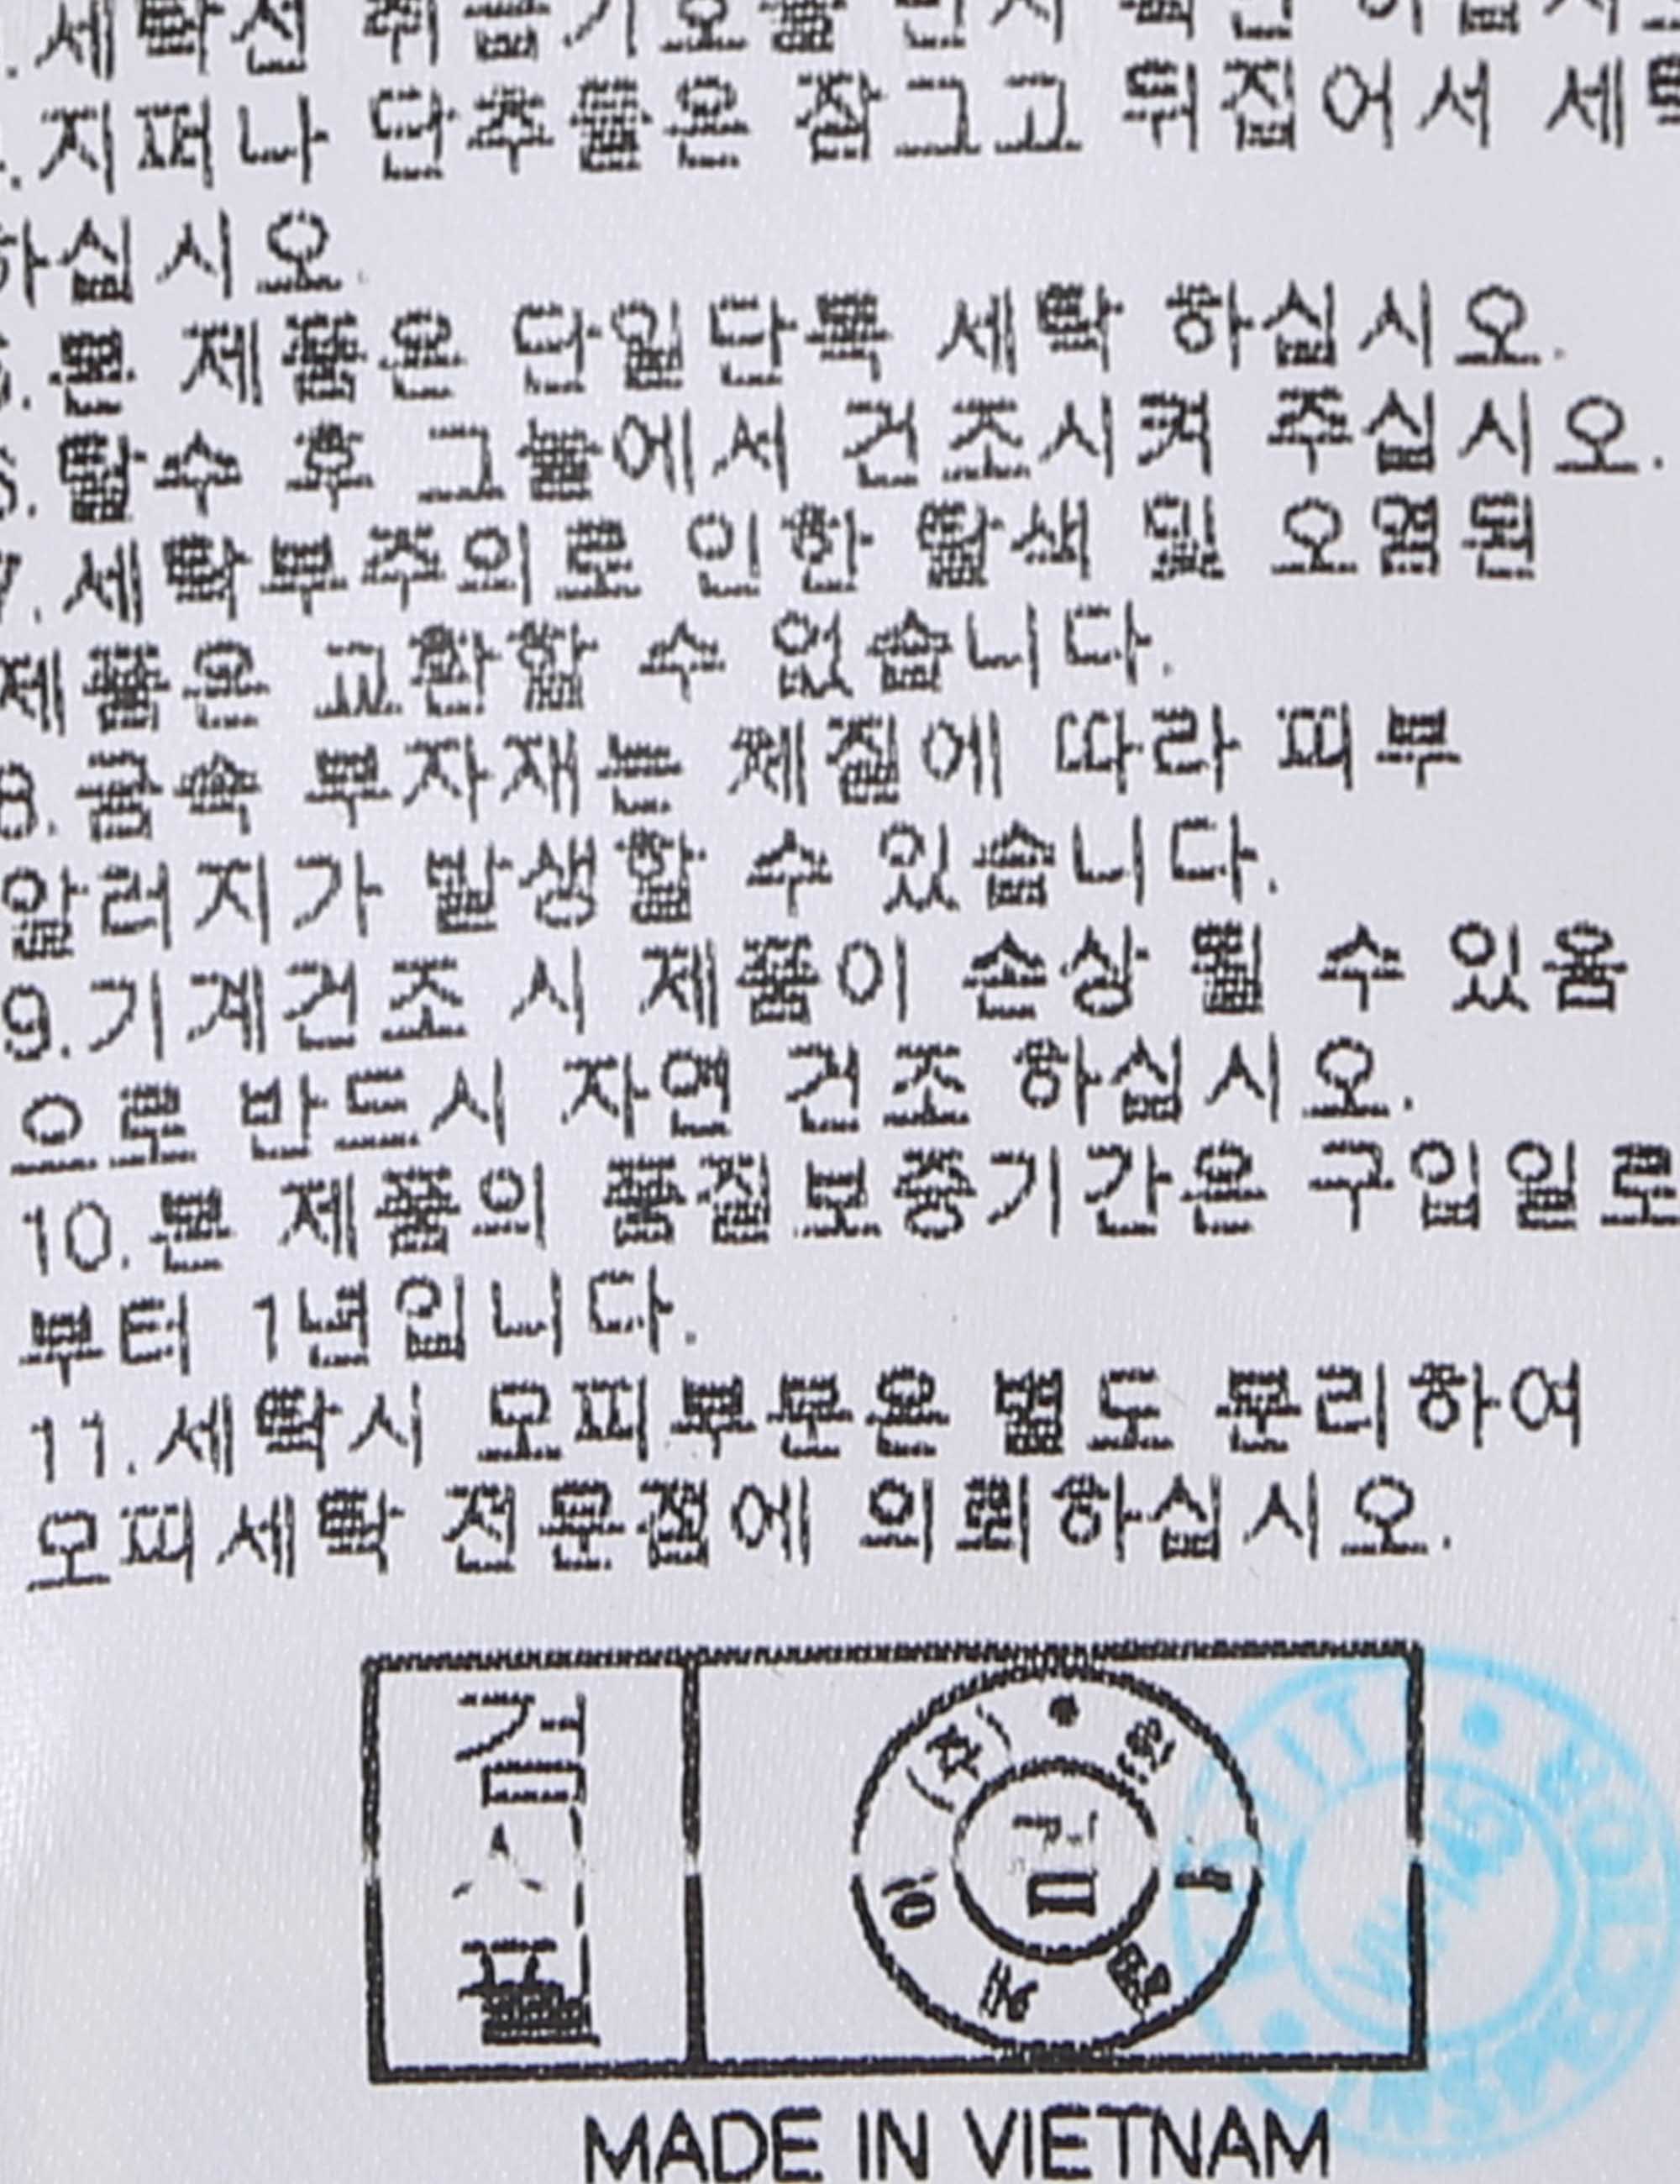 .세탁전 취급기호를 먼저 확인 하십시오
.지퍼나 단추들은 잠그고 뒤집어서 세탁
하십시오.
5.본 제품은 단일단독 세탁 하십시오.
6.탈수 후 그늘에서 건조시켜 주십시오.
7.세탁부주의로 인한 탈색 및 오염된
제품은 교환할 수 없습니다.
8.금속 부자재는 체질에 따라 피부
알러지가 발생할 수 있습니다.
9.기계건조 시 제품이 손상 될 수 있음
으로 반드시 자연 건조 하십시오.
10.본 제품의 품질보증기간은 구입일로
부터 1년입니다.
11.세탁시 모피부분은 별도 분리하여
모피세탁 전문점에 의뢰하십시오.
검사필
(주)
검
MADE IN VIETNAM